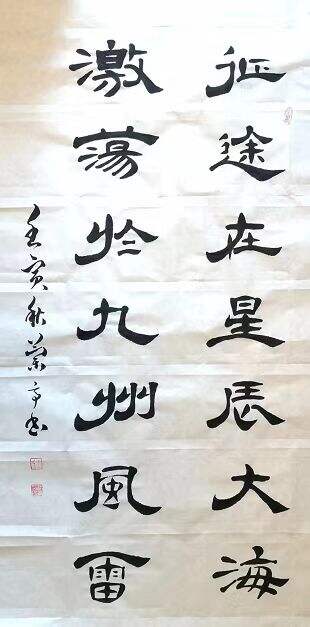 征途在星辰大海
激蕩於九州風雷
壬寅秋蘭亭书